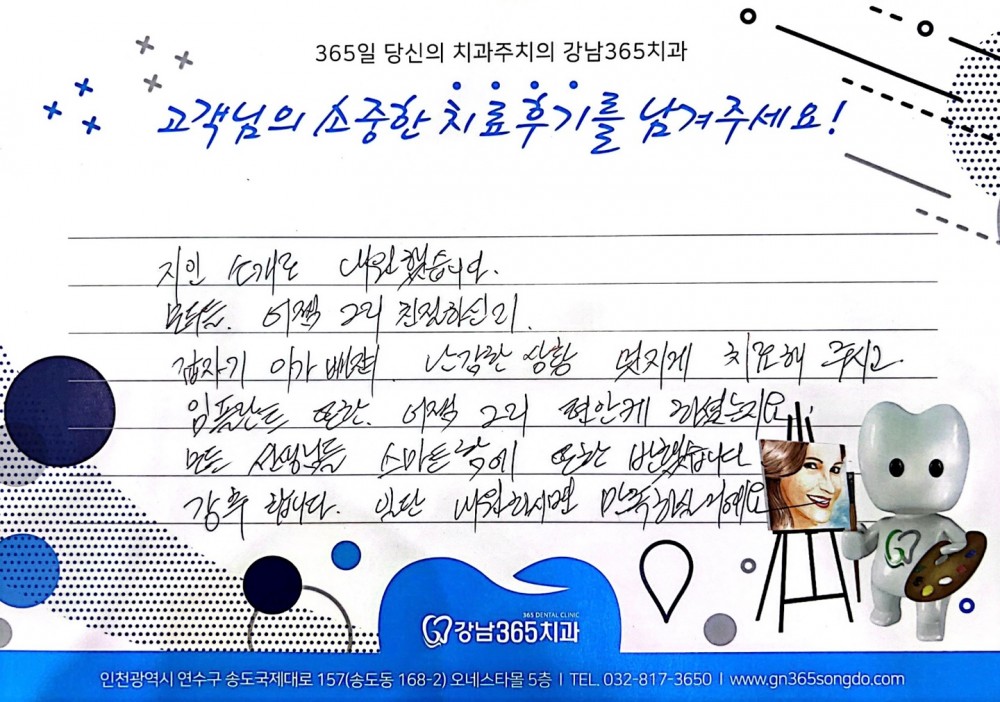 365일 당신의 치과주치의 강남365치과
고객님의 소중한 치료후기를 남겨주세요!
지인 소개로 내원했습니다.
모두들. 어쩜 그리 친절하신지.
갑자기 이가 빠져. 난감한 상황 멋지게 치료해 주시고.
임플란트 또한. 어쩜 그리 편안케 하셨는지요
모든 선생님들 스마트함에 또한 반했습니다
강추 합니다. 일단 내원하시면 만족하실거예요
365 DENTAL CLINIC
강남365치과
인천광역시 연수구 송도국제대로 157(송도동 168-2) 오네스타몰 5층 | TEL. 032-817-3650 | www.gn365songdo.com